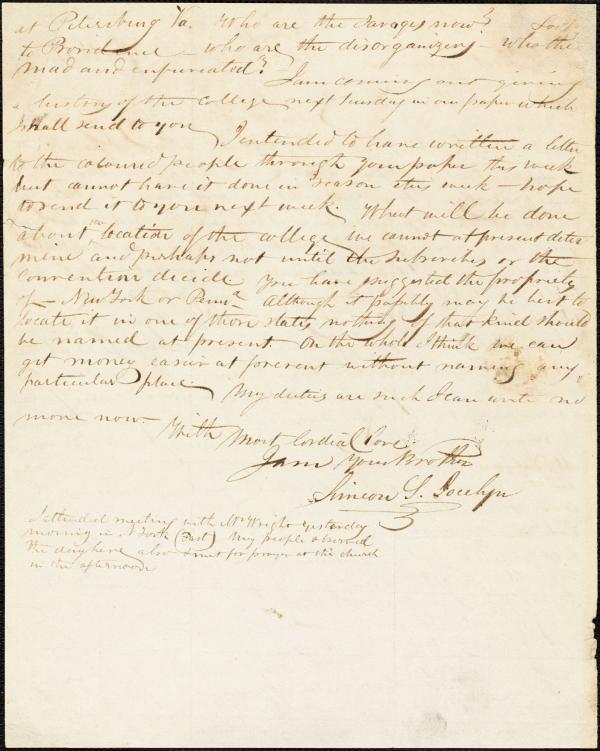 at Petersburg Va. Who are the savages now? Look
to Providence – who are the disorganizers – who the
mad and infuriated? I am coming out giving
a history of the college next tuesday in our paper which
I shall send to you I intended to have written a letter
to the coloured people through your paper this week
but cannot have it done in season this week – hope
to send it to you next week. What will be done
about the location of the college we cannot at present deter
mine and perhaps not until the subscribers or the
convention decide You have suggested the propriety
of – New York or Penna. Although it possibly may be best to
locate it in one of those states nothing of that kind should
be named at present On the whole I think we can
get money easier at present without naming any
particular place My duties are such I can write no
more now. With Most Cordial Love
I am Your Brother
Simeon S. Jocelyn
I attended meeting with Mr Wright yesterday
morning in N York (Fast) My people observed
the day here also & met for prayer at the church
in the afternoon